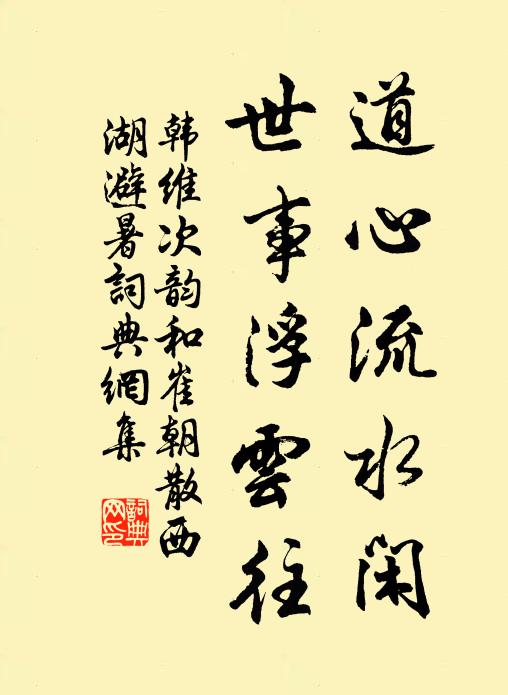 道心流水闲
世事浮雲往
韩维次韵和崔朝散西
湖避暑詞典網集
詞典
网印